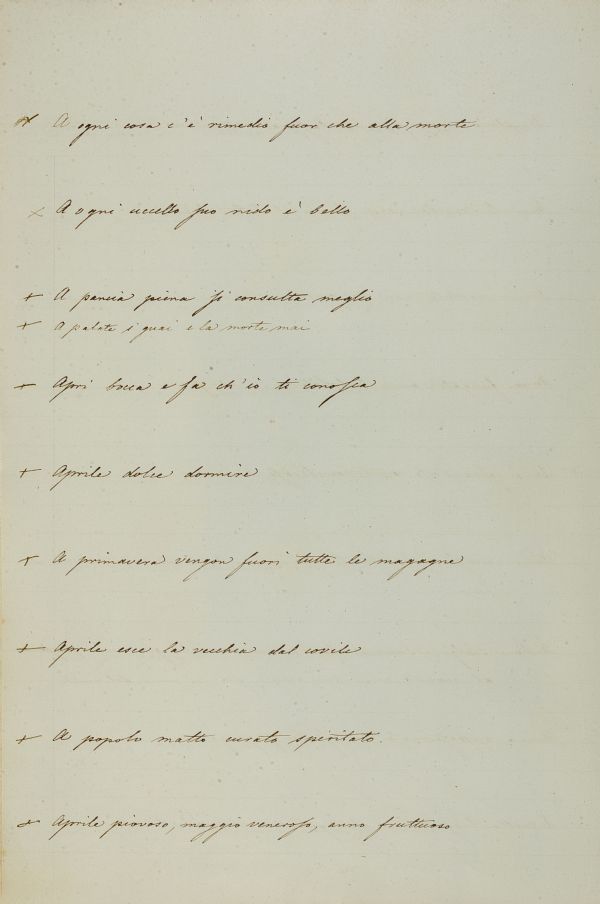 A ogni cosa c'è rimedio fuor che alla morte
A ogni uccello suo nido è bello
A pancia piena si consulta meglio
A palate i guai e la morte mai
Apri bocca e fa ch'io ti conosca
Aprile dolce dormire
A primavera vengon fuori tutte le magagne
Aprile esce la vecchia dal covile
A popolo matto curato spiritato
Aprile piovoso, maggio veneroso, anno fruttuoso